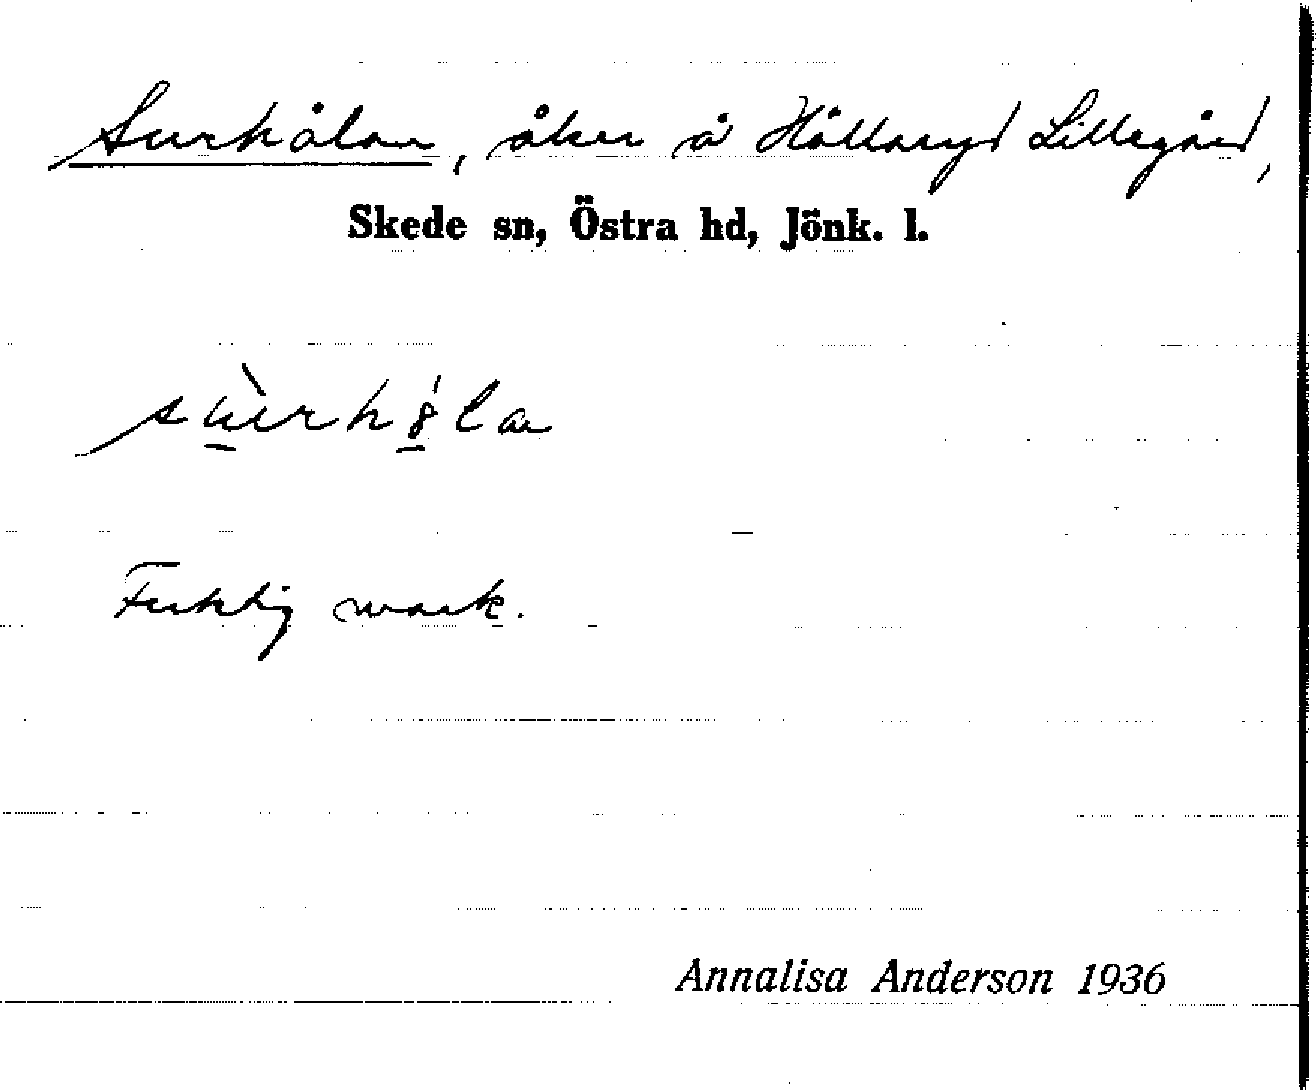 Surhålan, åker å Hållaryd Lillegård,
Skede sn, Östra hd, Jönk. l.
Fuktig mark.
Annalisa Anderson 1936